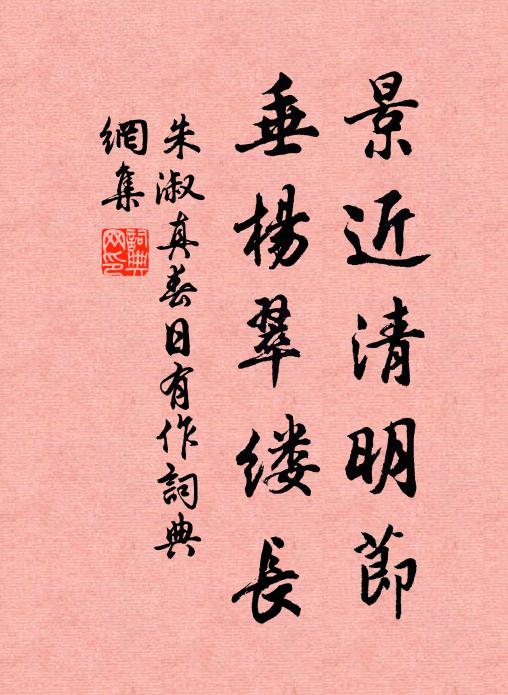 景近清明節
垂楊翠缕長
朱淑真春日有作詞典
網集
詞典
网印